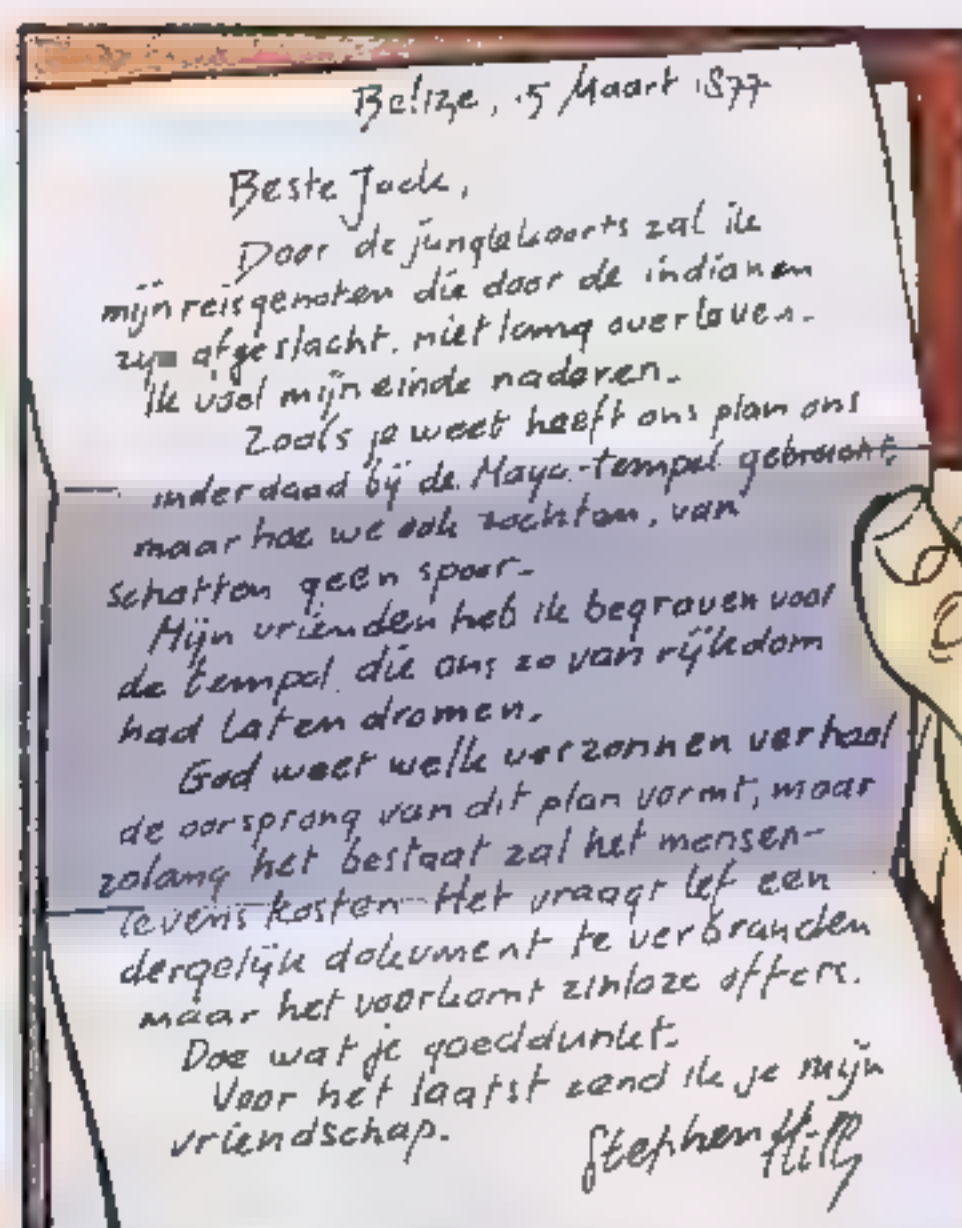 Belize, 15 Maart 1877
Beste Jack,
Door de junglekoorts zal ik
mijn reisgenoten die door de indianen
zijn afgeslacht, niet lang overleven.
Ik voel mijn einde naderen.
Zoals je weet heeft ons plan ons
inderdaad bij de Maya-tempel gebracht,
maar hoe we ook zochten, van
schatten geen spoor.
Mijn vrienden heb ik begraven voor
de tempel die ons zo van rijkdom
had laten dromen.
God weet welk verzonnen verhaal
de oorsprong van dit plan vormt, maar
zolang het bestaat zal het mensen-
levens kosten. Het vraagt lef een
dergelijk dokument te verbranden
maar het voorkomt zinloze offers.
Doe wat je goeddunkt.
Voor het laatst zend ik je mijn
vriendschap.
Stephen Hill